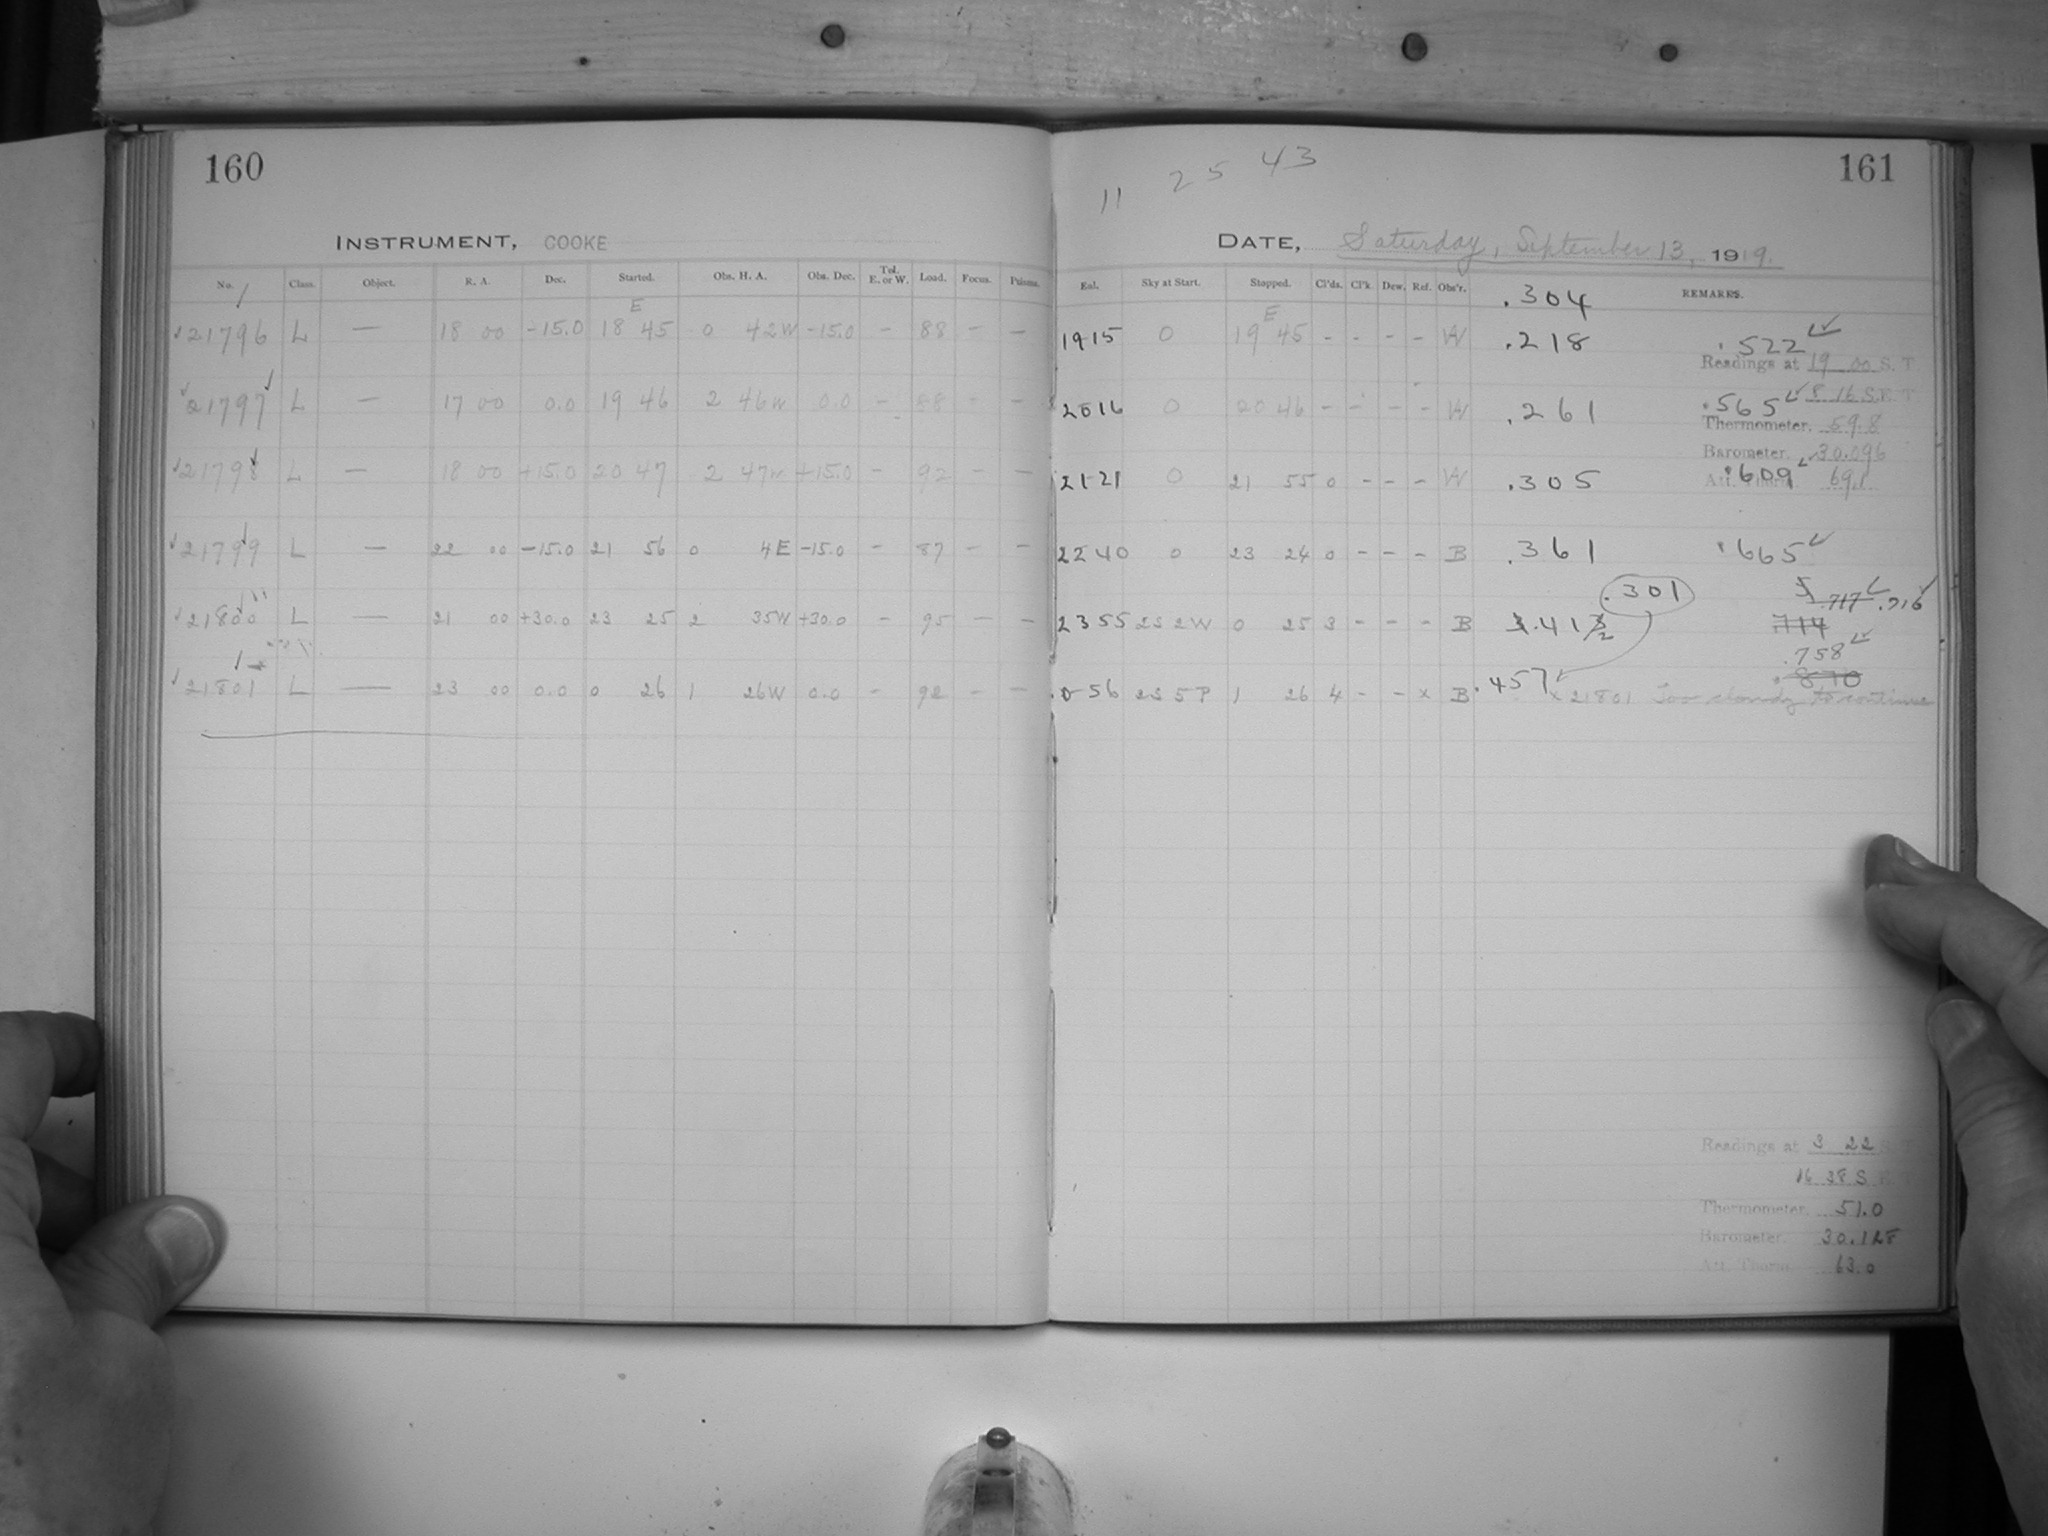 160
INSTRUMENT, COOKE
No. Class. Object. R. A. Dec. Started. Obs. H. A. Obs. Dec. Tel. E. or W. Load. Focus. Prisms.
E
21796 L — 18 00 -15.0 18 45 0 42W -15.0 - 88 - -
21797 L — 17 00 0.0 19 46 2 46W 0.0 - 88 - -
21798 L — 18 00 +15.0 20 47 2 47W +15.0 - 92 - -
21799 L — 22 00 -15.0 21 56 0 4E -15.0 - 87 - -
21800 L — 21 00 +30.0 23 25 2 35W +30.0 - 95 - -
21801 L — 23 00 0.0 0 26 1 26W 0.0 - 92 - -
161
11 25 43
DATE, Saturday, September 13, 1919.
Eal. Sky at Start. Stopped. Cl'ds. Cl'k. Dew. Ref. Obs'r. REMARKS.
.304
E
1915 0 19 45 - - - - W .218 .522
Readings at 19 00 S. T
8 16 S.E. T
2016 0 20 46 - - - - W .261 .565
Thermometer. 59.8
Barometer. 30.096
2121 0 21 55 0 - - - W .305 .609
Att. Therm. 69.1
2240 0 23 24 0 - - - B .361 .665
.301
.717 .716
2355 2S 2W 0 25 3 - - - B .412
714
.758
.870
0 56 2S 5P 1 26 4 - - x B .457 x 21801 Too cloudy to continue
Readings at 3 22 S. T
16 38 S
Thermometer. 51.0
Barometer. 30.128
Att. Therm. 63.0